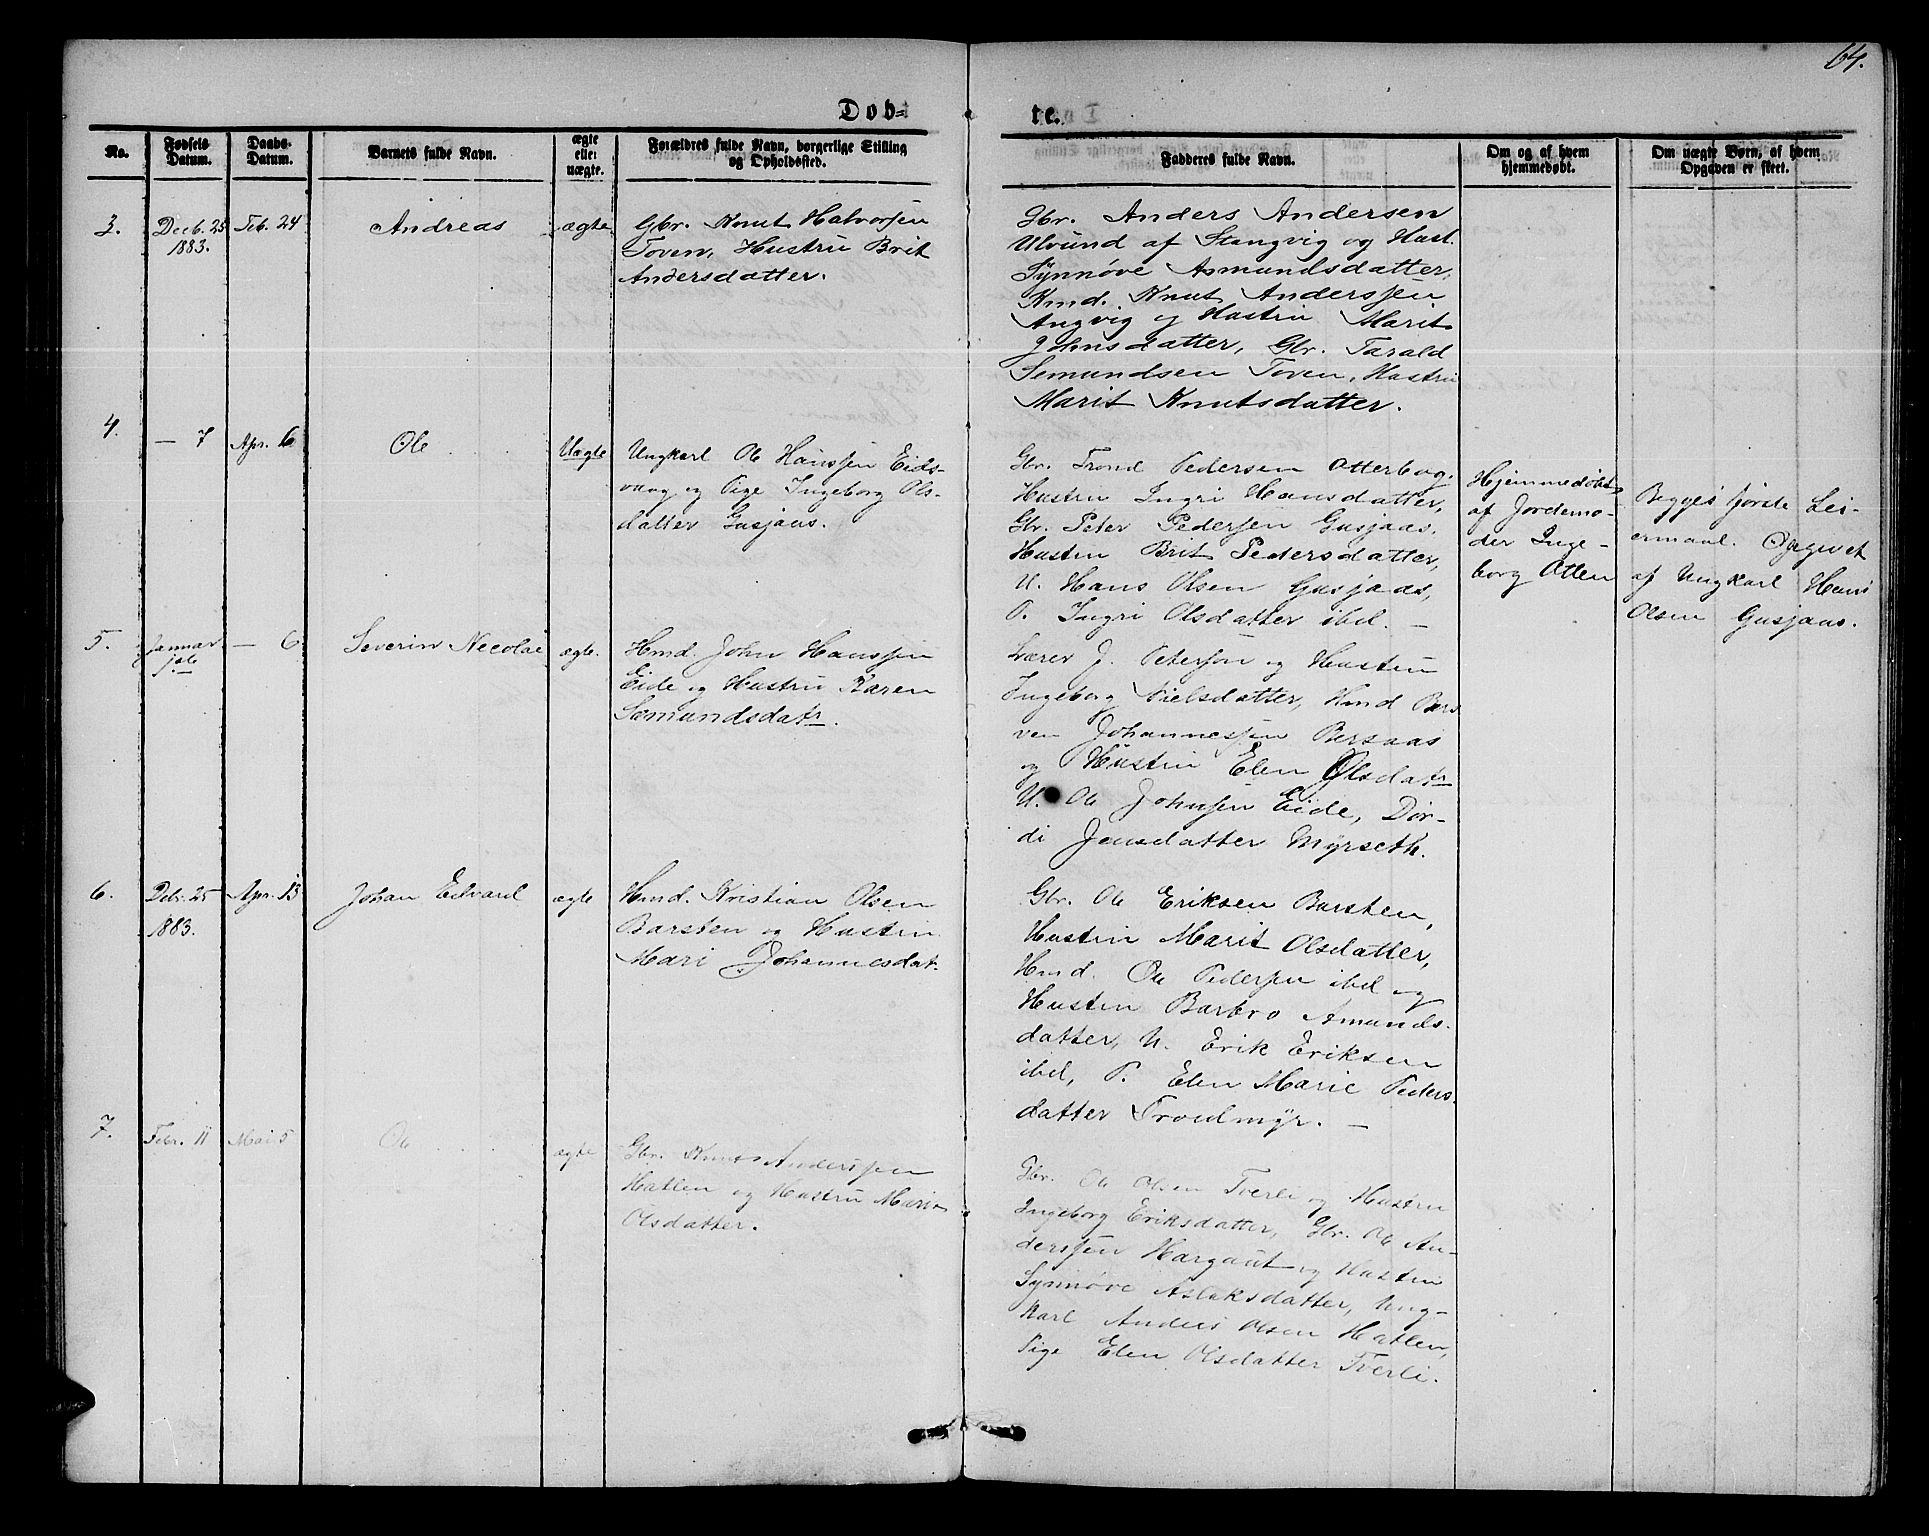 64.
Døb=
te.
No.
Fødsels Datum.
Daabs- Datum.
Barnets fulde Navn.
ægte eller uægte.
Forældres fulde Navn, borgerlige Stilling og Opholdssted.
Faddernes fulde Navn.
Om og af hvem hjemmedøbt.
Om uægte Børn, af hvem Opgaven er skeet.
3.
Decb. 25
1883.
Feb. 24
Andreas
ægte
Gbr. Knut Halvorsen
Toven, Hustru Brit
Andersdatter.
Gbr. Anders Andersen
Ulvund af Stangvig og Hust.
Synnøve Asmundsdatter,
Kmd. Knut Anderssen
Angvig og Hustru Marit
Johnsdatter, Gbr. Tarald
Semundsen Toven, Hustru
Marit Knutsdatter.
4.
— 7
Apr. 6
Ole
Uægte
Ungkarl Ole Hanssen Eids-
vaag og Pige Ingeborg Ols-
datter Gusjaas.
Gbr. Trond Pedersen Otterbog,
Hustru Ingri Hansdatter,
Gbr. Peter Pedersen Gusjaas,
Hustru Brit Pedersdatter,
U. Hans Olsen Gusjaas,
P. Ingri Olsdatter ibd. —
Hjemmedøbt
af Jordemo-
der Inge-
borg Otten
Begges første Lei-
ermaal. Opgivet
af Ungkarl Hans
Olsen Gusjaas.
5.
Januar
— 6
Severin Necolai
ægte.
Hmd. John Hanssen
Eide og Hustru Karen
Semundsdatr.
Lærer J. Peterson og Hustru
Ingeborg Nielsdatter, Hmd
ven Johannessen Bersaas
og Hustru Elen Olsdatr
U. Ole Johnsen Eide, Dor-
di Jensdatter Myrseth.
6.
Debr. 25
1883.
Apr. 13
Johan Edvard
ægte
Hmd. Kristian Olsen
Barsten og Hustru
Mari Johannesdat.
Gbr. Ole Eriksen Barsten,
Hustru Marit Olsdatter,
Hmd. Ole Pedersen ibd og
Hustru Barbro Amunds-
datter, U. Erik Eriksen
ibd, P. Elen Marie Peders-
datter Troedmyr. —
7.
Febr. 11
Mai 5
Ole
ægte
Gbr. Knut Anderssen
Hatlen og Hustru Marit
Olsdatter.
Gbr. Ole Olsen Tverli og Hustru
Ingeborg Eriksdatter, Gbr. Ole An-
derssen Hargaut og Hustru
Synnøve Aslaksdatter, Ung-
karl Anders Olsen Hatlen,
Pige Elen Olsdatter Tverli.